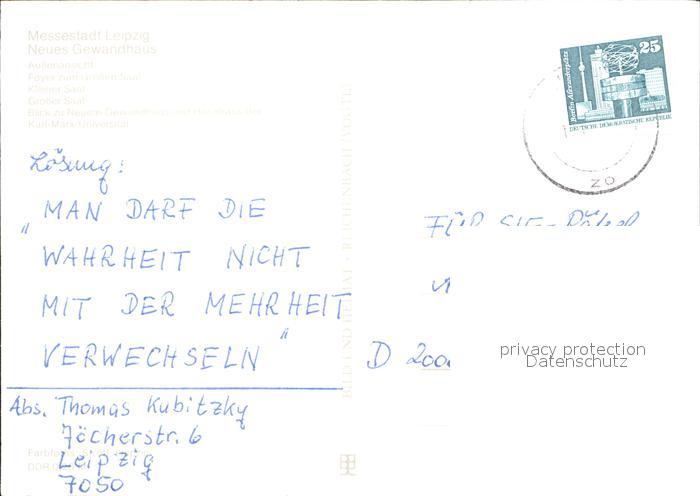 Messestadt Leipzig
Neues Gewandhaus
Außenansicht
Foyer zum Großen Saal
Kleiner Saal
Großer Saal
Blick zu Neuem Gewandhaus und Hochhaus der
Karl-Marx-Universität
Lösung:
"MAN DARF DIE
WAHRHEIT NICHT
MIT DER MEHRHEIT
VERWECHSELN"
Abs. Thomas Kubitzky
Jöcherstr. 6
Leipzig
7050
BILD UND HEIMAT · REICHENBACH (VOGTL)
25
Berlin Alexanderplatz
DEUTSCHE DEMOKRATISCHE REPUBLIK
ZO
FÜR SIE-
D 200
privacy protection
Datenschutz